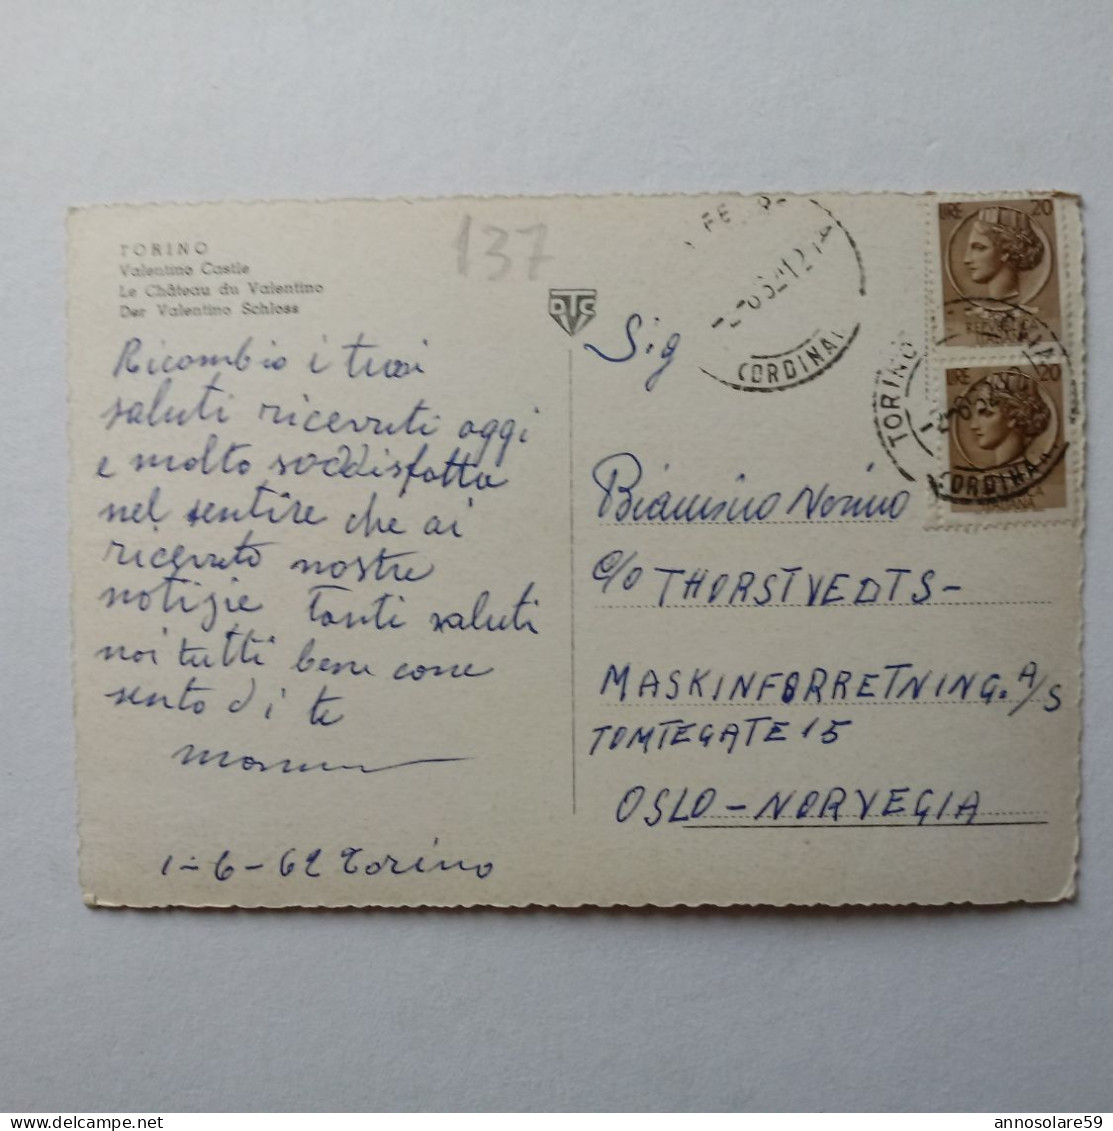 TORINO
Valentino Castle
Le Château du Valentino
Der Valentino Schloss
137
Ricambio i tuoi
saluti ricevuti oggi
e molto soddisfatta
nel sentire che ai
ricevuto nostre
notizie Tanti saluti
noi tutti bene come
sento di te
1-6-62 Torino
Sig
Nonino
c/o THORSTVEDTS-
MASKINFORRETNING. A/S
TOMTEGATE 15
OSLO-NORVEGIA
LIRE 20
LIRE 20
TORINO
(ORDINA
ORDINA
annosolare59